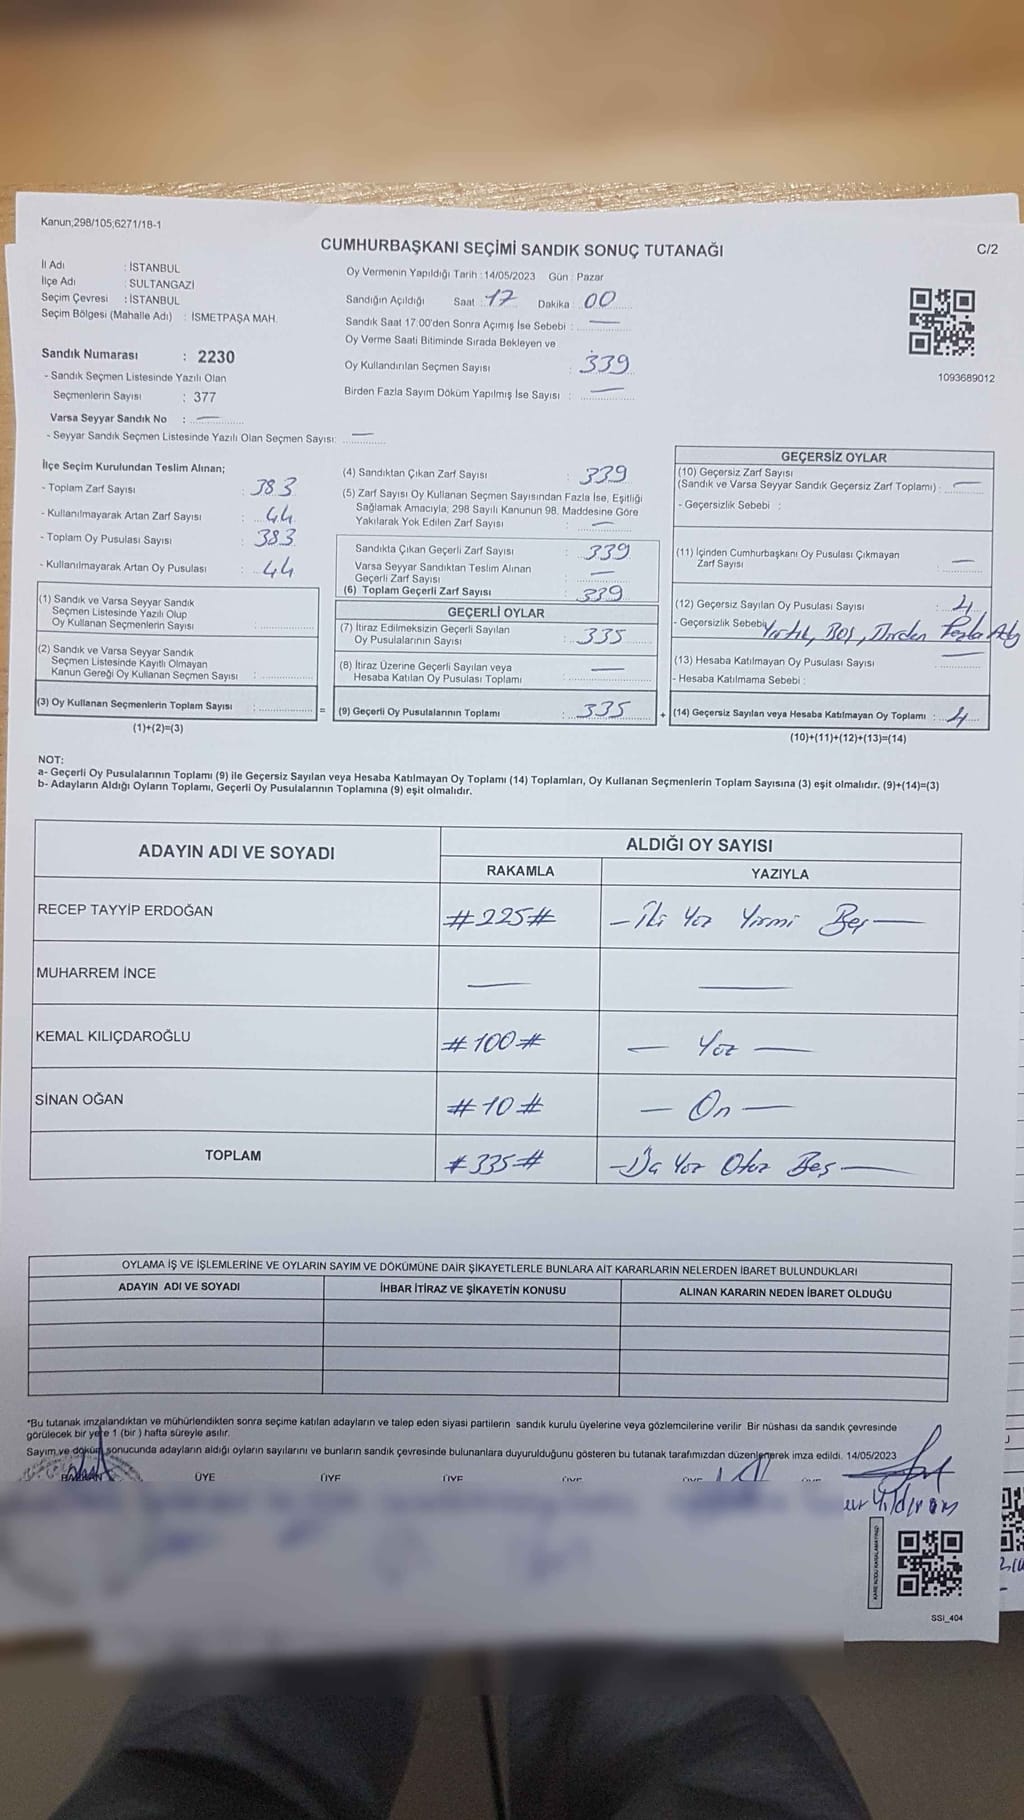 Kanun,298/105;6271/18-1
CUMHURBAŞKANI SEÇİMİ SANDIK SONUÇ TUTANAĞI
C/2
İl Adı : İSTANBUL
İlçe Adı : SULTANGAZİ
Seçim Çevresi : İSTANBUL
Seçim Bölgesi (Mahalle Adı) : İSMETPAŞA MAH.
Sandık Numarası : 2230
- Sandık Seçmen Listesinde Yazılı Olan
Seçmenlerin Sayısı : 377
Varsa Seyyar Sandık No : —
- Seyyar Sandık Seçmen Listesinde Yazılı Olan Seçmen Sayısı: —
Oy Vermenin Yapıldığı Tarih :14/05/2023 Gün : Pazar
Sandığın Açıldığı Saat : 17 Dakika : 00
Sandık Saat 17:00'den Sonra Açımış İse Sebebi : —
Oy Verme Saati Bitiminde Sırada Bekleyen ve
Oy Kullandırılan Seçmen Sayısı : 339
Birden Fazla Sayım Döküm Yapılmış İse Sayısı : —
1093689012
İlçe Seçim Kurulundan Teslim Alınan;
- Toplam Zarf Sayısı : 383
- Kullanılmayarak Artan Zarf Sayısı : 44
- Toplam Oy Pusulası Sayısı : 383
- Kullanılmayarak Artan Oy Pusulası : 44
(1) Sandık ve Varsa Seyyar Sandık
Seçmen Listesinde Yazılı Olup
Oy Kullanan Seçmenlerin Sayısı :
(2) Sandık ve Varsa Seyyar Sandık
Seçmen Listesinde Kayıtlı Olmayan
Kanun Gereği Oy Kullanan Seçmen Sayısı :
(3) Oy Kullanan Seçmenlerin Toplam Sayısı :
(1)+(2)=(3)
(4) Sandıktan Çıkan Zarf Sayısı : 339
(5) Zarf Sayısı Oy Kullanan Seçmen Sayısından Fazla İse, Eşitliği
Sağlamak Amacıyla, 298 Sayılı Kanunun 98. Maddesine Göre
Yakılarak Yok Edilen Zarf Sayısı : —
Sandıkta Çıkan Geçerli Zarf Sayısı : 339
Varsa Seyyar Sandıktan Teslim Alınan
Geçerli Zarf Sayısı : —
(6) Toplam Geçerli Zarf Sayısı : 339
GEÇERLİ OYLAR
(7) İtiraz Edilmeksizin Geçerli Sayılan
Oy Pusulalarının Sayısı : 335
(8) İtiraz Üzerine Geçerli Sayılan veya
Hesaba Katılan Oy Pusulası Toplamı : —
= (9) Geçerli Oy Pusulalarının Toplamı : 335
GEÇERSİZ OYLAR
(10) Geçersiz Zarf Sayısı
(Sandık ve Varsa Seyyar Sandık Geçersiz Zarf Toplamı) : —
- Geçersizlik Sebebi :
(11) İçinden Cumhurbaşkanı Oy Pusulası Çıkmayan
Zarf Sayısı : —
(12) Geçersiz Sayılan Oy Pusulası Sayısı : 4
- Geçersizlik Sebebi : Yırtık, Boş, Birden Fazla Aday
(13) Hesaba Katılmayan Oy Pusulası Sayısı : —
- Hesaba Katılmama Sebebi :
+ (14) Geçersiz Sayılan veya Hesaba Katılmayan Oy Toplamı : 4
(10)+(11)+(12)+(13)=(14)
NOT:
a- Geçerli Oy Pusulalarının Toplamı (9) ile Geçersiz Sayılan veya Hesaba Katılmayan Oy Toplamı (14) Toplamları, Oy Kullanan Seçmenlerin Toplam Sayısına (3) eşit olmalıdır. (9)+(14)=(3)
b- Adayların Aldığı Oyların Toplamı, Geçerli Oy Pusulalarının Toplamına (9) eşit olmalıdır.
ADAYIN ADI VE SOYADI
ALDIĞI OY SAYISI
RAKAMLA YAZIYLA
RECEP TAYYİP ERDOĞAN #225# — İki Yüz Yirmi Beş —
MUHARREM İNCE — —
KEMAL KILIÇDAROĞLU #100# — Yüz —
SİNAN OĞAN #10# — On —
TOPLAM #335# — Üç Yüz Otuz Beş —
OYLAMA İŞ VE İŞLEMLERİNE VE OYLARIN SAYIM VE DÖKÜMÜNE DAİR ŞİKAYETLERLE BUNLARA AİT KARARLARIN NELERDEN İBARET BULUNDUKLARI
ADAYIN ADI VE SOYADI İHBAR İTİRAZ VE ŞİKAYETİN KONUSU ALINAN KARARIN NEDEN İBARET OLDUĞU
*Bu tutanak imzalandıktan ve mühürlendikten sonra seçime katılan adayların ve talep eden siyasi partilerin sandık kurulu üyelerine veya gözlemcilerine verilir. Bir nüshası da sandık çevresinde
görülecek bir yere 1 (bir ) hafta süreyle asılır.
Sayım ve döküm sonucunda adayların aldığı oyların sayılarını ve bunların sandık çevresinde bulunanlara duyurulduğunu gösteren bu tutanak tarafımızdan düzenlenerek imza edildi. 14/05/2023
BAŞKAN ÜYE ÜYE ÜYE ÜYE ÜYE ÜYE
Yıldırım
SSI_404